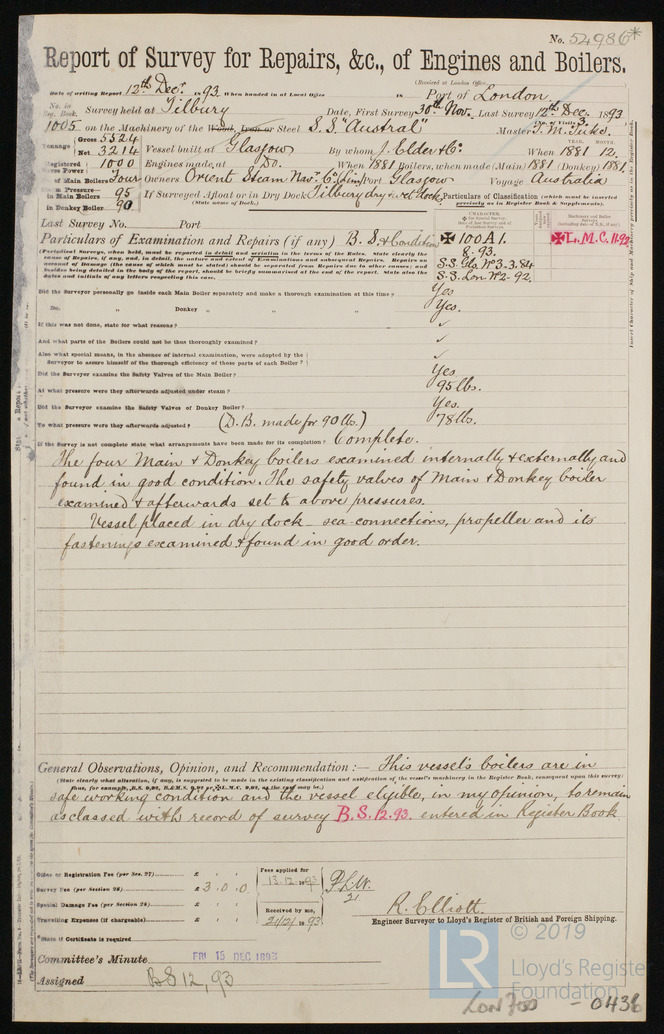 No. 54986*
Report of Survey for Repairs, &c., of Engines and Boilers.
(Received at London Office
Date of writing Report 12th Decr. 1893. When handed in at Local Office 18 Port of London
No. in Reg. Book. Survey held at Tilbury Date, First Survey 30th Nov. Last Survey 12th Dec. 1893
1005 on the Machinery of the Wood, Iron or Steel S.S. "Austral" Master J. M. Tuke.
Tonnage Gross 5524 Net 3214 Vessel built at Glasgow By whom J. Elder & Co. When 1881 12.
Registered Horse Power 1000 Engines made at Do. When 1881 Boilers, when made (Main) 1881 (Donkey) 1881.
of Main Boilers Four Owners Orient Steam Nav. Co. (Lim) Port Glasgow Voyage Australia
Steam Pressure in Main Boilers 95 If Surveyed Afloat or in Dry Dock Tilbury dry & wet dock.
in Donkey Boiler 90 (State name of Dock.)
Particulars of Classification (which must be inserted precisely as in Register Book & Supplements).
Last Survey No. Port
Particulars of Examination and Repairs (if any) B.S. & Condition
✠ 100 A 1.
8. 93.
S.S. Gls. No 3 - 3.84
S.S. Lon. No 2 - 92.
✠ L.M.C. 11.92
Did the Surveyor personally go inside each Main Boiler separately and make a thorough examination at this time? Yes
Do. " Donkey " " " Yes.
If this was not done, state for what reasons? ✓
And what parts of the Boilers could not be thus thoroughly examined? ✓
Also what special means, in the absence of internal examination, were adopted by the
Surveyor to assure himself of the thorough efficiency of those parts of each Boiler? ✓
Did the Surveyor examine the Safety Valves of the Main Boiler? Yes
At what pressure were they afterwards adjusted under steam? 95 lbs.
Did the Surveyor examine the Safety Valves of Donkey Boiler? Yes.
To what pressure were they afterwards adjusted? (D.B. made for 90 lbs.) 78 lbs.
If the Survey is not complete state what arrangements have been made for its completion? Complete.
The four Main & Donkey boilers examined internally & externally and
found in good condition. The safety valves of Main & Donkey boiler
examined & afterwards set to above pressures.
Vessel placed in dry dock - sea connections, propeller and its
fastenings examined & found in good order.
General Observations, Opinion, and Recommendation:— This vessel's boilers are in
(State clearly what alteration, if any, is suggested to be made in the existing classification and notification of the vessel's machinery in the Register Book, consequent upon this survey:
safe working condition and the vessel eligible, in my opinion, to remain
as classed with record of survey B.S. 12.93. entered in Register Book.
Office or Registration Fee (per Sec. 27) £
Survey Fee (per Section 28) £ 3. 0. 0.
Special Damage Fee (per Section 28) £
Travelling Expenses (if chargeable) £
Fees applied for
13.12.1893
Received by me,
21/12/1893
R. Elliott.
Engineer Surveyor to Lloyd's Register of British and Foreign Shipping.
State if Certificate is required
Committee's Minute FRI 15 DEC 1893
Assigned BS 12, 93
LR
© 2019
Lloyd's Register
Foundation
LON 700 - 0436